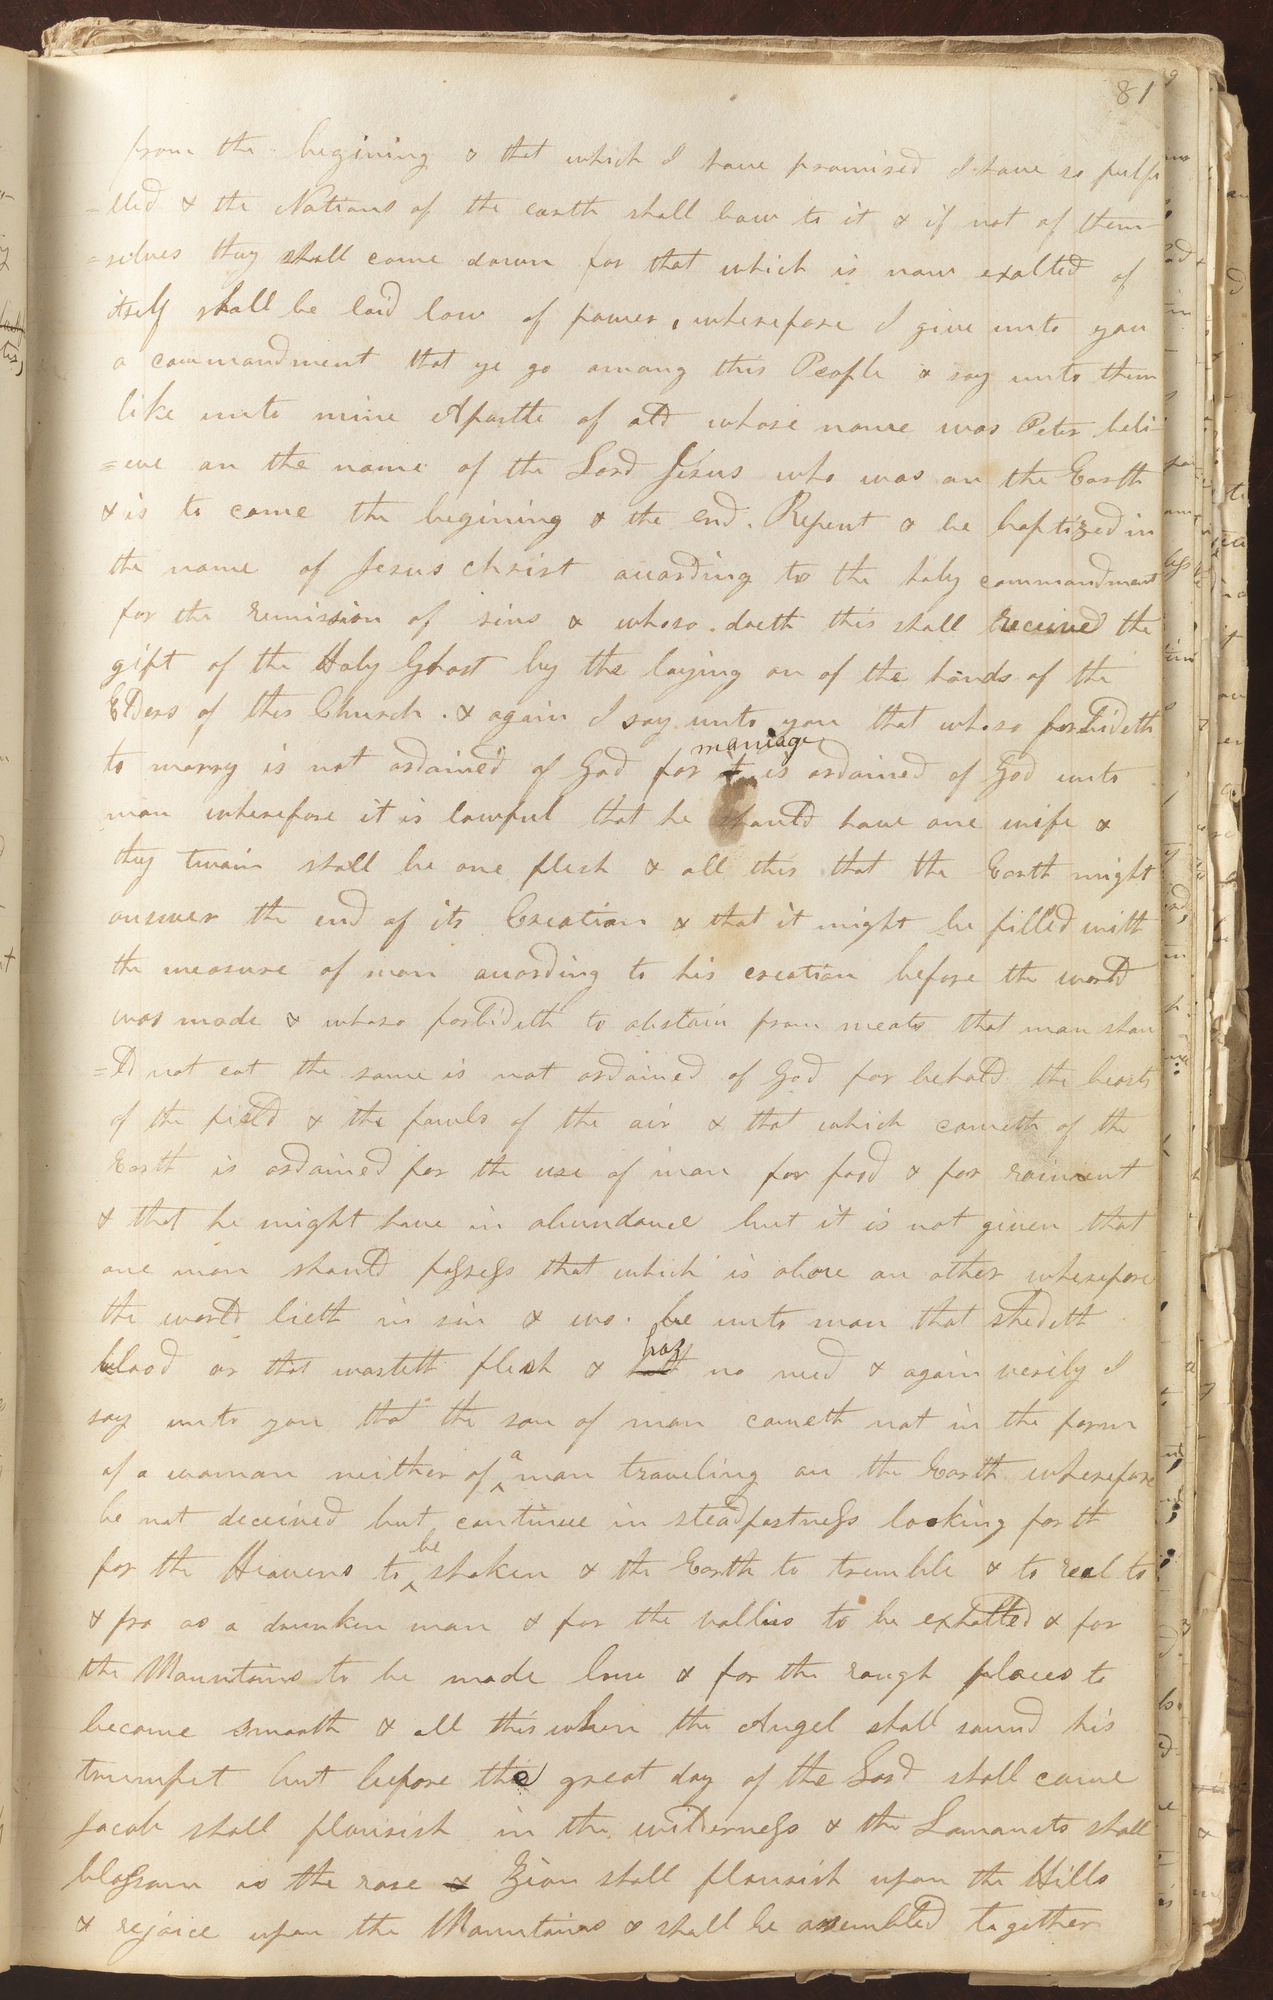 81
from the begining & that which I have promised I have so fulfi
=lled & the Nations of the earth shall bow to it & if not of them
=selves they shall come down for that which is now exalted of
itself shall be laid low of power, wherefore I give unto you
a commandment that ye go among this People & say unto them
like unto mine Apostle of old whose name was Peter beli
=eve on the name of the Lord Jesus who was on the Earth
& is to come the begining & the end. Repent & be baptized in
the name of Jesus Christ according to the holy commandment
for the remission of sins & whoso doeth this shall received the
gift of the Holy Ghost by the laying on of the hands of the
Elders of this Church. & again I say unto you that whoso forbideth
to marry is not ordained of God for mariage is ordained of God unto
man wherefore it is lawful that he should have one wife &
they twain shall be one flesh & all this that the Earth might
answer the end of its Creation & that it might be filled with
the measure of man according to his creation before the world
was made & whoso forbideth to abstain from meats that man shou
=ld not eat the same is not ordained of God for behold the beasts
of the field & the fowls of the air & that which cometh of the
Earth is ordained for the use of man for food & for raiment
& that he might have in abundance but it is not given that
one man should possess that which is above an other wherefore
the world lieth in sin & wo be unto man that shedeth
blood or that wasteth flesh & haz no need & again verily I
say unto you that the son of man cometh not in the form
of a woman neither of a man traveling on the Earth wherefore
be not deceived but continue in steadfastness looking forth
for the Heavens to be shaken & the Earth to tremble & to reel to
& fro as a drunken man & for the vallies to be exhalted & for
the Mountains to be made low & for the rough places to
become smooth & all this when the Angel shall sound his
trumpet but before the great day of the Lord shall come
Jacob shall flourish in the wilderness & the Lamanits shall
blossom as the rose & Zion shall flourish upon the Hills
& rejoice upon the Mountains & shall be assembled together